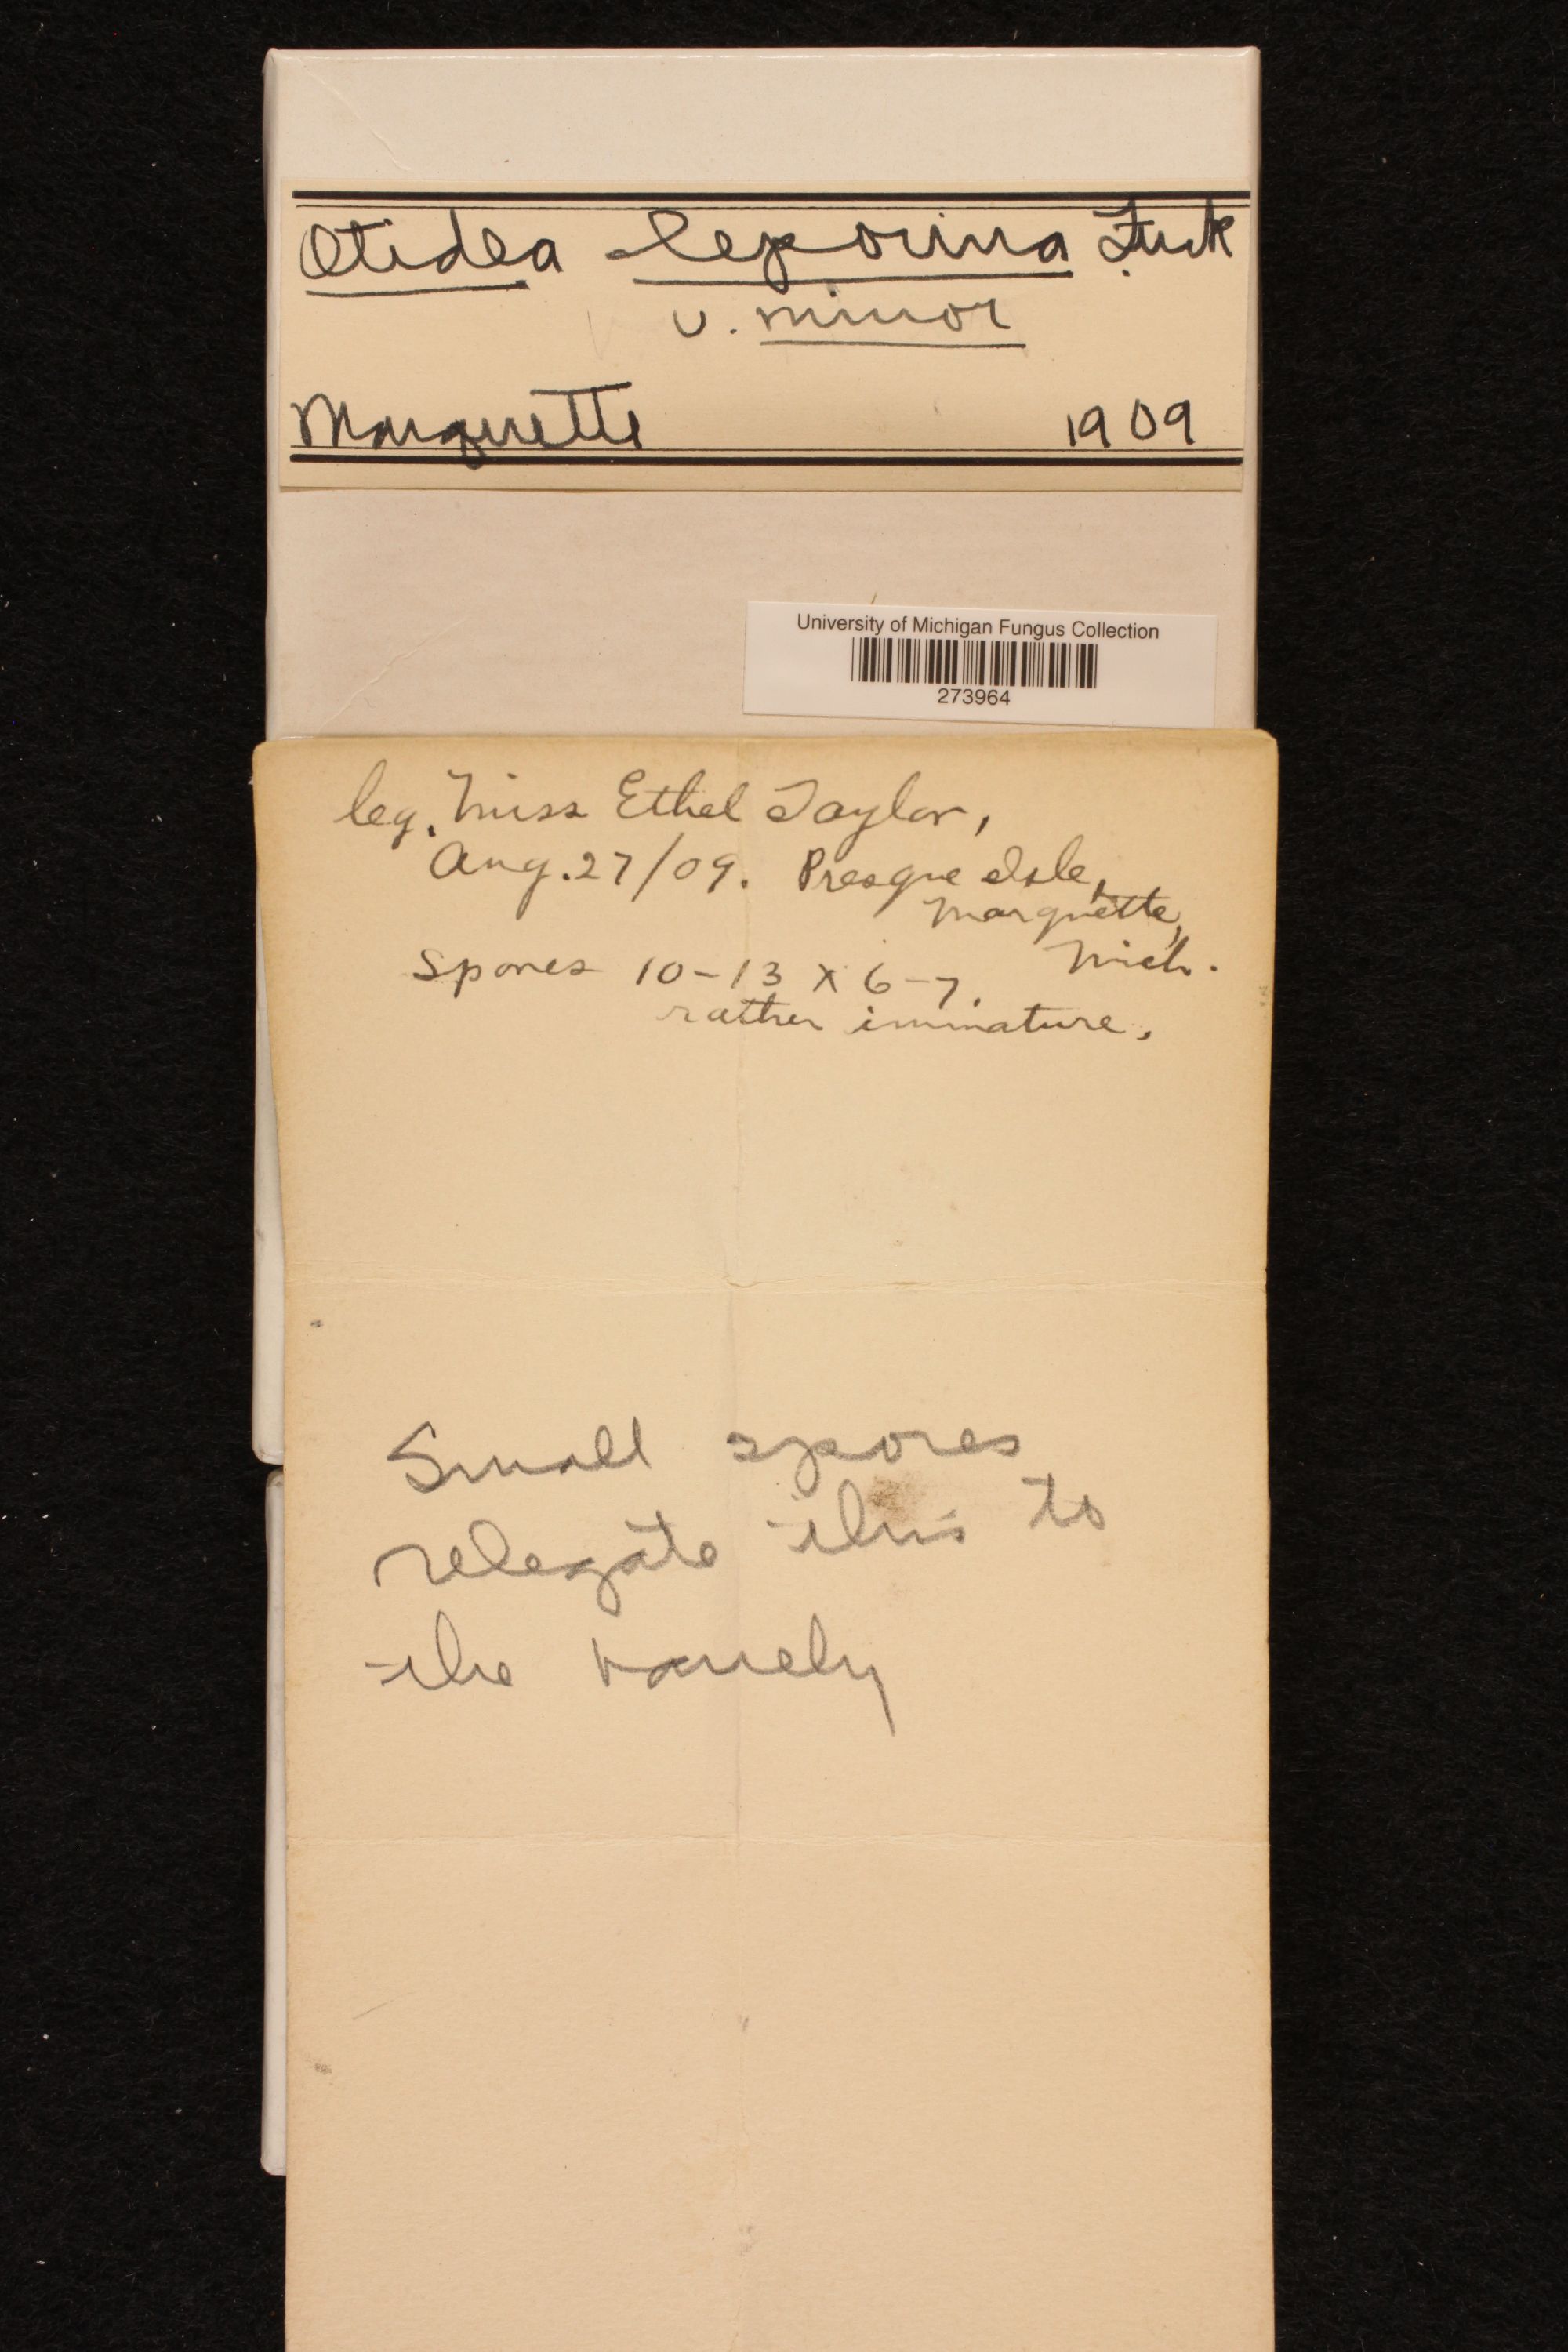 Otidea leporina Fuck
v. minor
Marquette 1909
University of Michigan Fungus Collection
273964
leg. Miss Ethel Taylor,
Aug. 27/09. Presque Isle,
Marquette,
Mich.
Spores 10-13 x 6-7.
rather immature.
Small spores
relegate this to
the variety